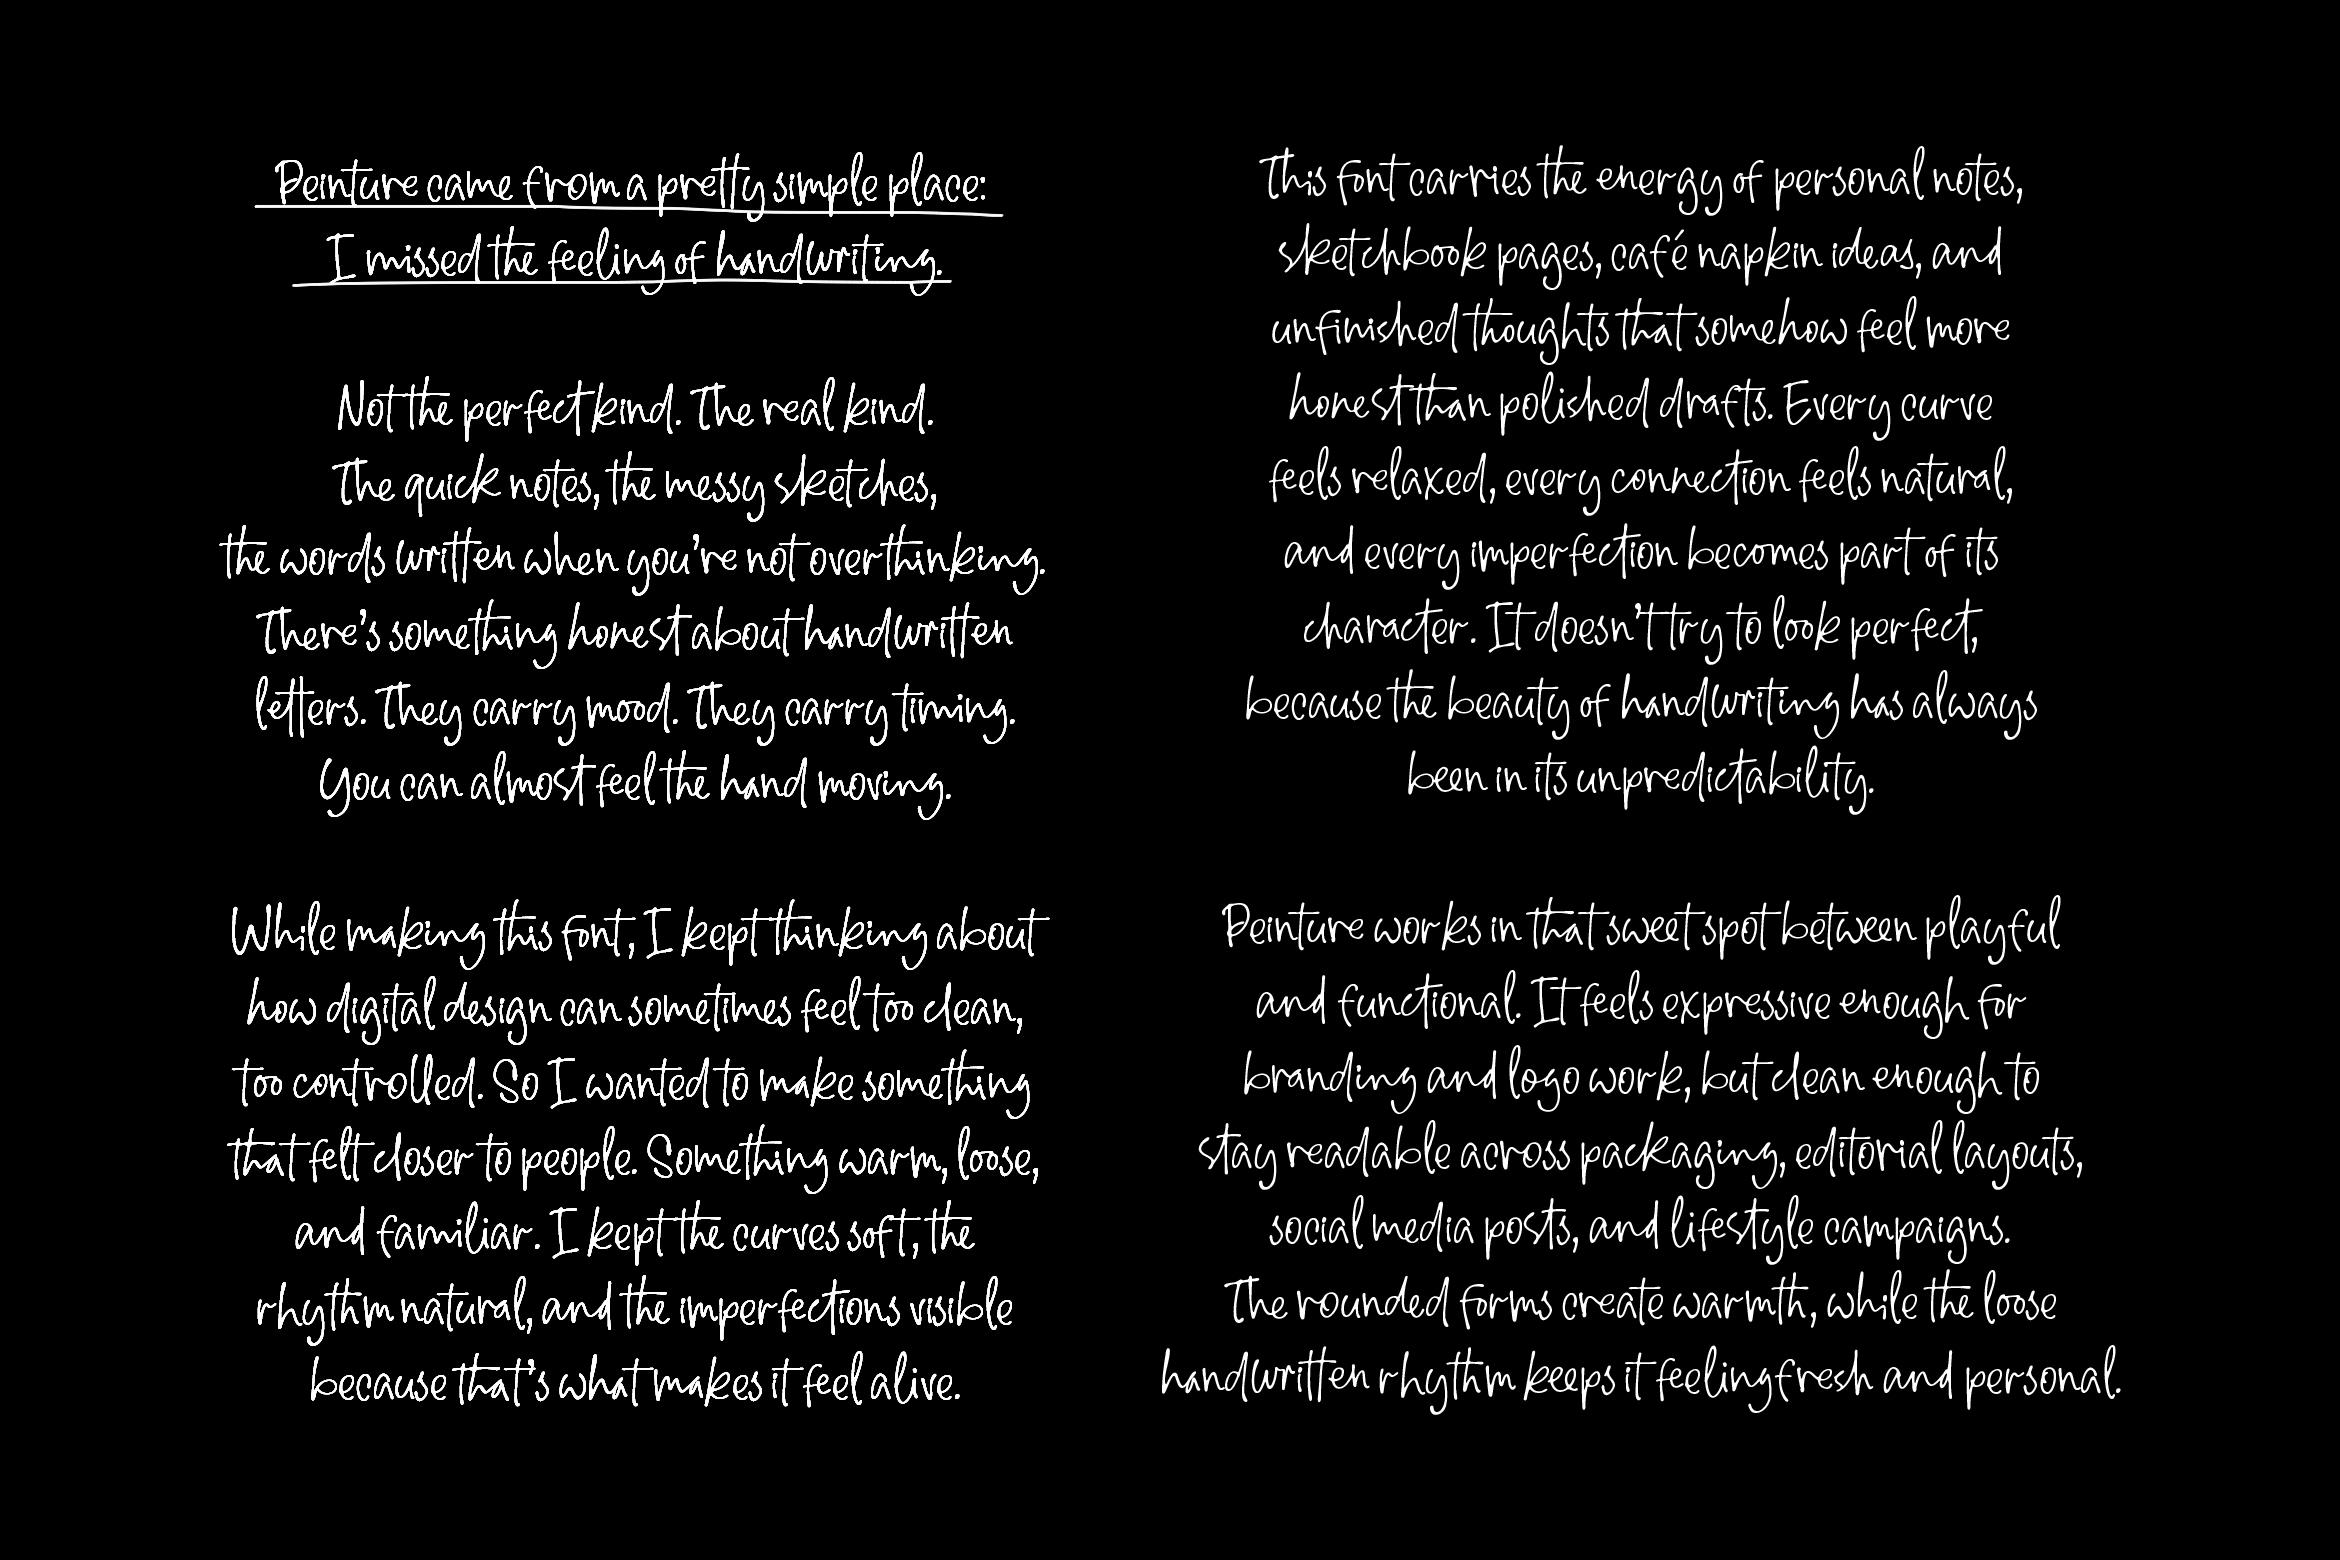 Peinture came from a pretty simple place:
I missed the feeling of handwriting.
Not the perfect kind. The real kind.
The quick notes, the messy sketches,
the words written when you're not overthinking.
There's something honest about handwritten
letters. They carry mood. They carry timing.
You can almost feel the hand moving.
While making this font, I kept thinking about
how digital design can sometimes feel too clean,
too controlled. So I wanted to make something
that felt closer to people. Something warm, loose,
and familiar. I kept the curves soft, the
rhythm natural, and the imperfections visible
because that's what makes it feel alive.
This font carries the energy of personal notes,
sketchbook pages, café napkin ideas, and
unfinished thoughts that somehow feel more
honest than polished drafts. Every curve
feels relaxed, every connection feels natural,
and every imperfection becomes part of its
character. It doesn't try to look perfect,
because the beauty of handwriting has always
been in its unpredictability.
Peinture works in that sweet spot between playful
and functional. It feels expressive enough for
branding and logo work, but clean enough to
stay readable across packaging, editorial layouts,
social media posts, and lifestyle campaigns.
The rounded forms create warmth, while the loose
handwritten rhythm keeps it feeling fresh and personal.